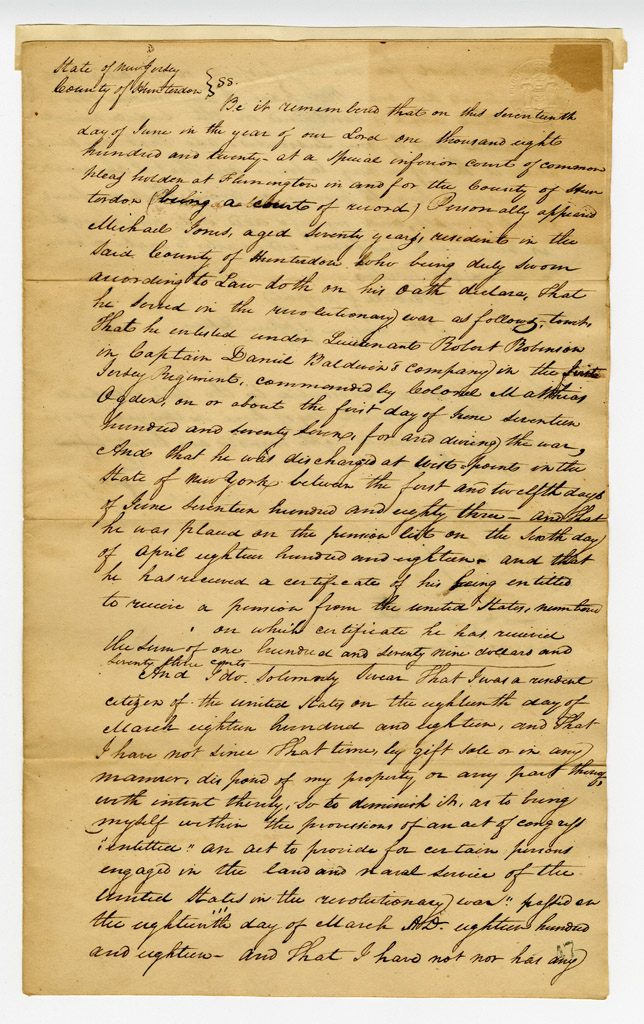 State of New Jersey
County of Hunterdon } SS.
Be it remembered that on this seventeenth
day of June in the year of our Lord one thousand eight
hundred and twenty - at a Special inferior court of common
pleas holden at Flemington in and for the County of Hun
terdon (being a court of record) Personally appeared
Michael Jones, aged seventy years, resident in the
said County of Hunterdon who being duly sworn
according to Law doth on his Oath declare, That
he served in the revolutionary war as follows, towit
That he enlisted under Lieutenant Robert Robinson
in Captain Daniel Baldwin's company in the first
Jersey Regiment, commanded by Colonel Mathias
Ogden, on or about the first day of June seventeen
hundred and seventy seven, for and during the war,
And that he was discharged at West point in the
State of New York between the first and twelfth days
of June seventeen hundred and eighty three - and that
he was placed on the pension list on the sixth day
of April eighteen hundred and eighteen - and that
he has received a certificate of his being entitled
to receive a pension from the united States, numbered
on which certificate he has received
the sum of one hundred and seventy nine dollars and
seventy three cents
And I do Solemnly Swear That I was a resident
citizen of the united States on the eighteenth day of
March eighteen hundred and eighteen, and that
I have not since that time, by gift sale or in any
manner, disposed of my property or any part thereof,
with intent thereby, so to diminish it, as to bring
myself within the provisions of an act of congress
"entitled" an act to provide for certain persons
engaged in the land and naval service of the
United States in the revolutionary war" passed on
the eighteenth day of March A.D. eighteen hundred
and eighteen - and That I have not nor has any